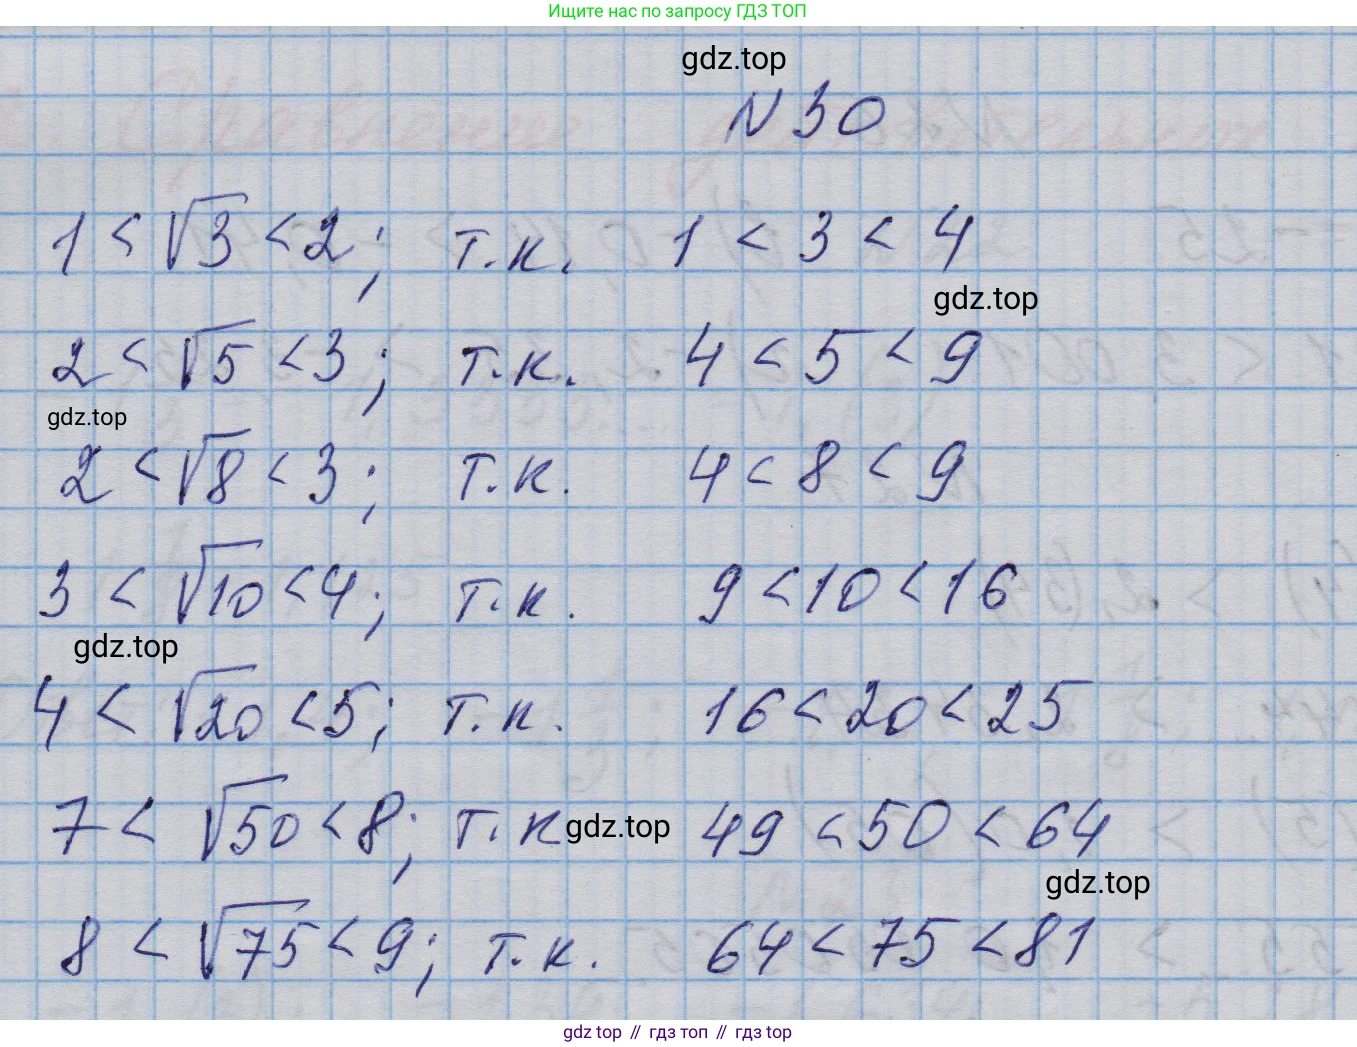 Ищите нас по запросу ГДЗ ТОП
gdz.top
N 30
1 < √3 < 2; т.к. 1 < 3 < 4
gdz.top
2 < √5 < 3; т.к. 4 < 5 < 9
gdz.top
2 < √8 < 3; т.к. 4 < 8 < 9
3 < √10 < 4; т.к. 9 < 10 < 16
gdz.top
4 < √20 < 5; т.к. 16 < 20 < 25
7 < √50 < 8; т.к gdz.top 49 < 50 < 64
gdz.top
8 < √75 < 9; т.к. 64 < 75 < 81
gdz top // гдз топ // gdz top